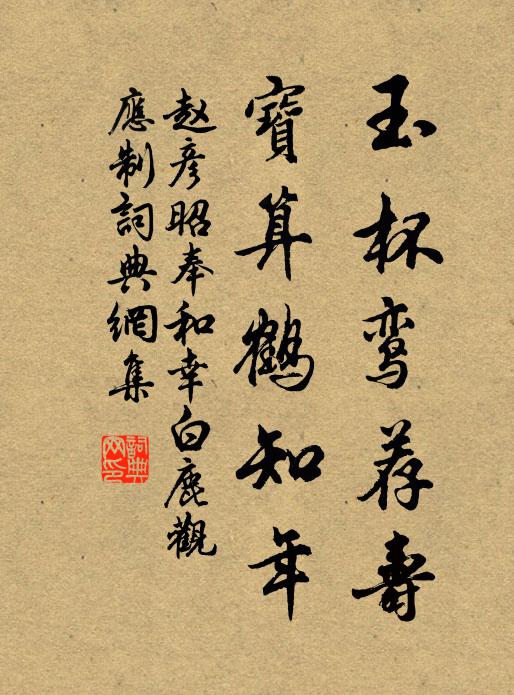 玉杯鸾荐寿
寶算鶴知年
赵彦昭奉和幸白鹿觀
應制詞典網集
詞典网印